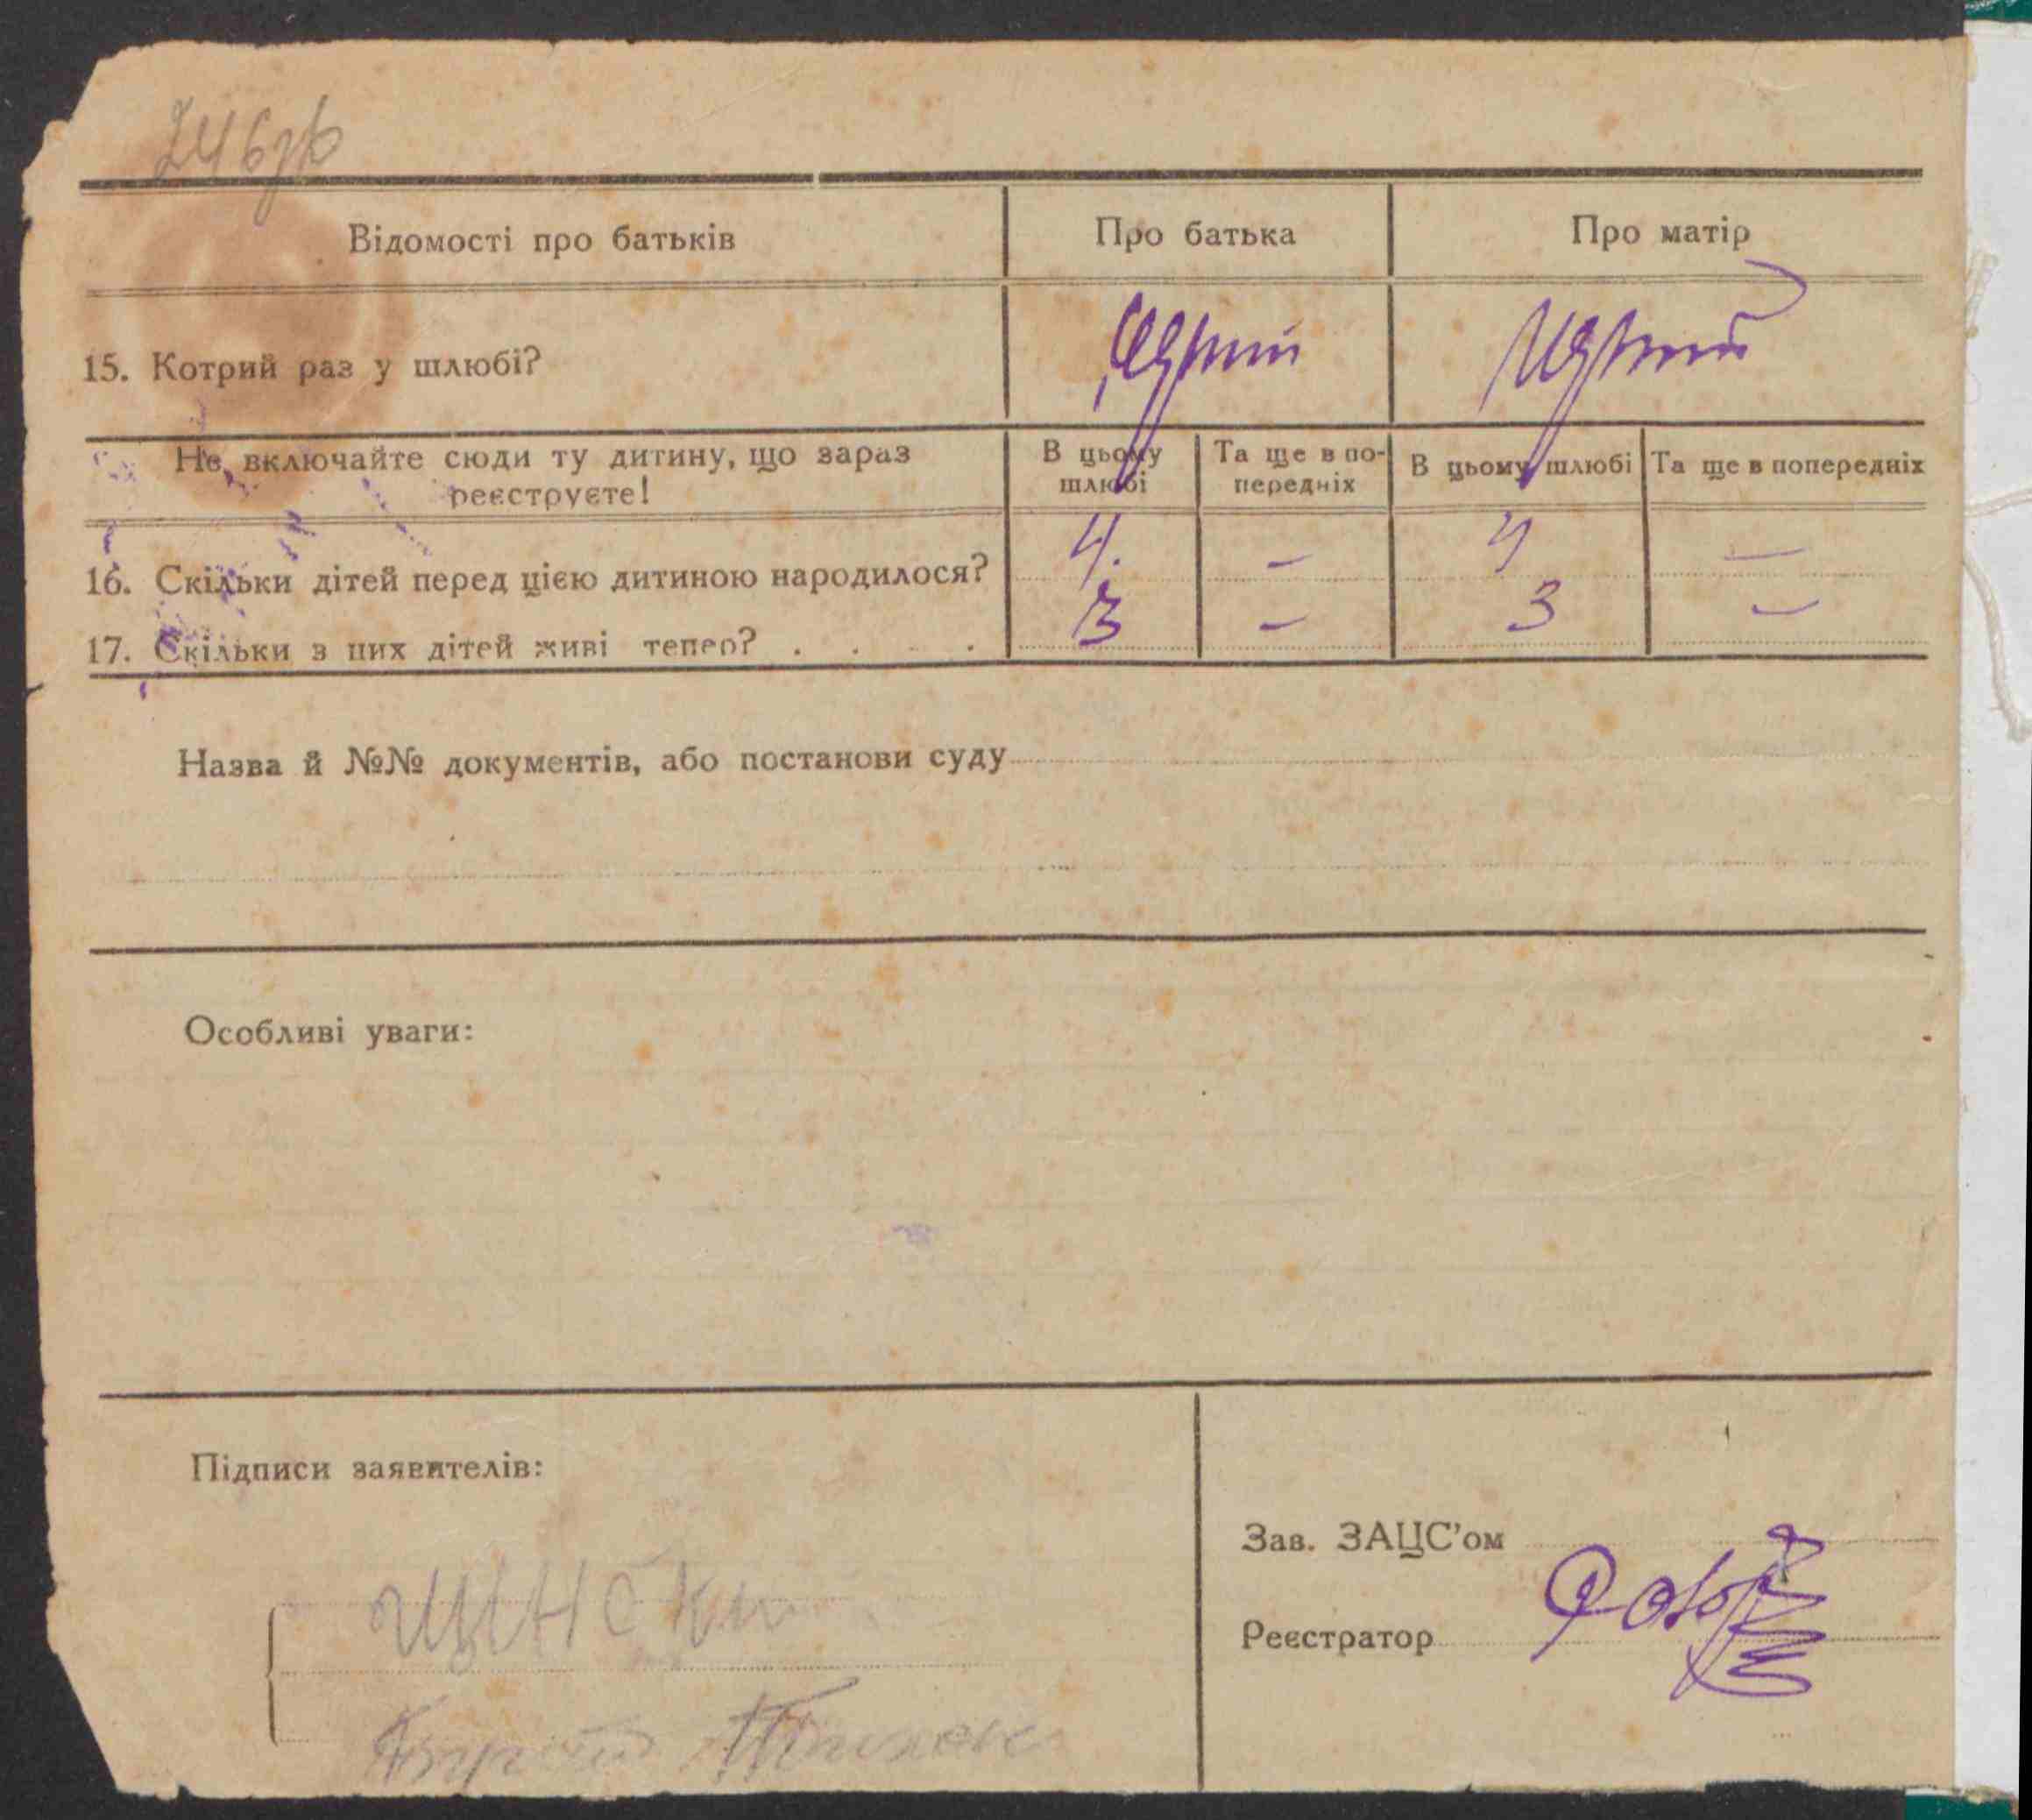 Відомості про батьків Про батька Про матір
15. Котрий раз у шлюбі?
Не включайте сюди ту дитину, що зараз реєструєте! В цьому шлюбі Та ще в попередніх В цьому шлюбі Та ще в попередніх
16. Скільки дітей перед цією дитиною народилося? 4. – 4 –
17. Скільки з них дітей живі тепер? . . . 3 – 3 –
Назва й №№ документів, або постанови суду
Особливі уваги:
Підписи заявителів:
Зав. ЗАЦС'ом
Реєстратор